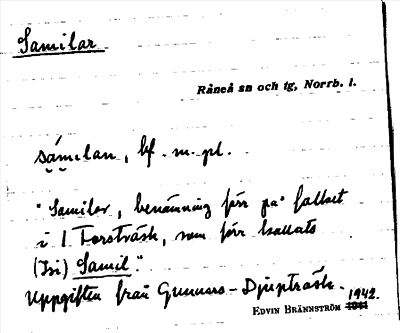 Samilar
Råneå sn och tg, Norrb. l.
sámılan, bf. m. pl.
"Samilar, benämning förr på folket
i l Forsträsk, som förr kallats
(Isi) Samil."
Uppgiften från Gunnars-Djupträsk.
1942.
EDVIN BRÄNNSTRÖM 1941